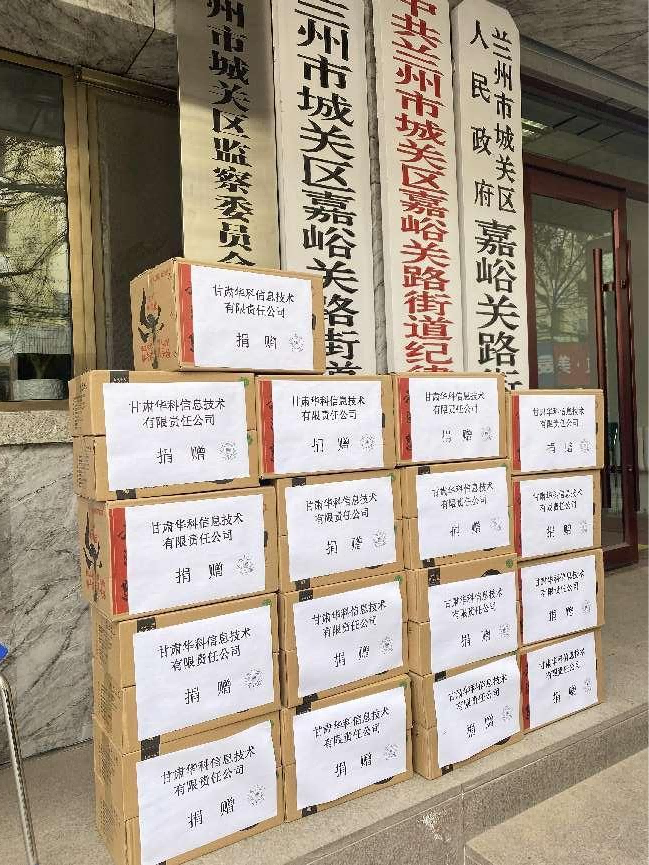 州市城关区监察委员会
兰州市城关区嘉峪关路街道
中共兰州市城关区嘉峪关路街道纪律
兰州市城关区
人民政府
嘉峪关路街
甘肃华科信息技术
有限责任公司
捐 赠
甘肃华科信息技术
有限责任公司
捐 赠
甘肃华科信息技术
有限责任公司
捐 赠
甘肃华科信息技术
有限责任公司
捐 赠
甘肃华科信息技术
有限责任公司
捐 赠
甘肃华科信息技术
有限责任公司
捐 赠
甘肃华科信息技术
有限责任公司
捐 赠
甘肃华科信息技术
有限责任公司
捐 赠
甘肃华科信息技术
有限责任公司
捐 赠
甘肃华科信息技术
有限责任公司
捐 赠
甘肃华科信息技术
有限责任公司
捐 赠
甘肃华科信息技术
有限责任公司
捐 赠
甘肃华科信息技术
有限责任公司
捐 赠
甘肃华科信息技术
有限责任公司
捐 赠
甘肃华科信息技术
有限责任公司
捐 赠
甘肃华科信息技术
有限责任公司
捐 赠
甘肃华科信息技术
有限责任公司
捐 赠